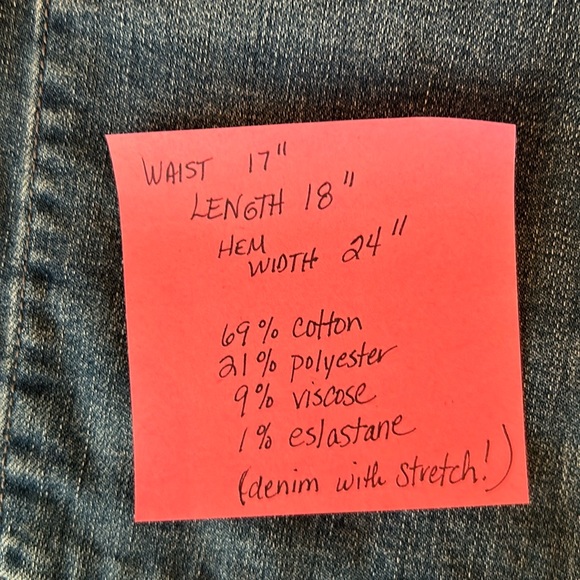 WAIST 17"
LENGTH 18"
HEM
WIDTH 24"
69% cotton
21% polyester
9% viscose
1% eslastane
(denim with stretch!)